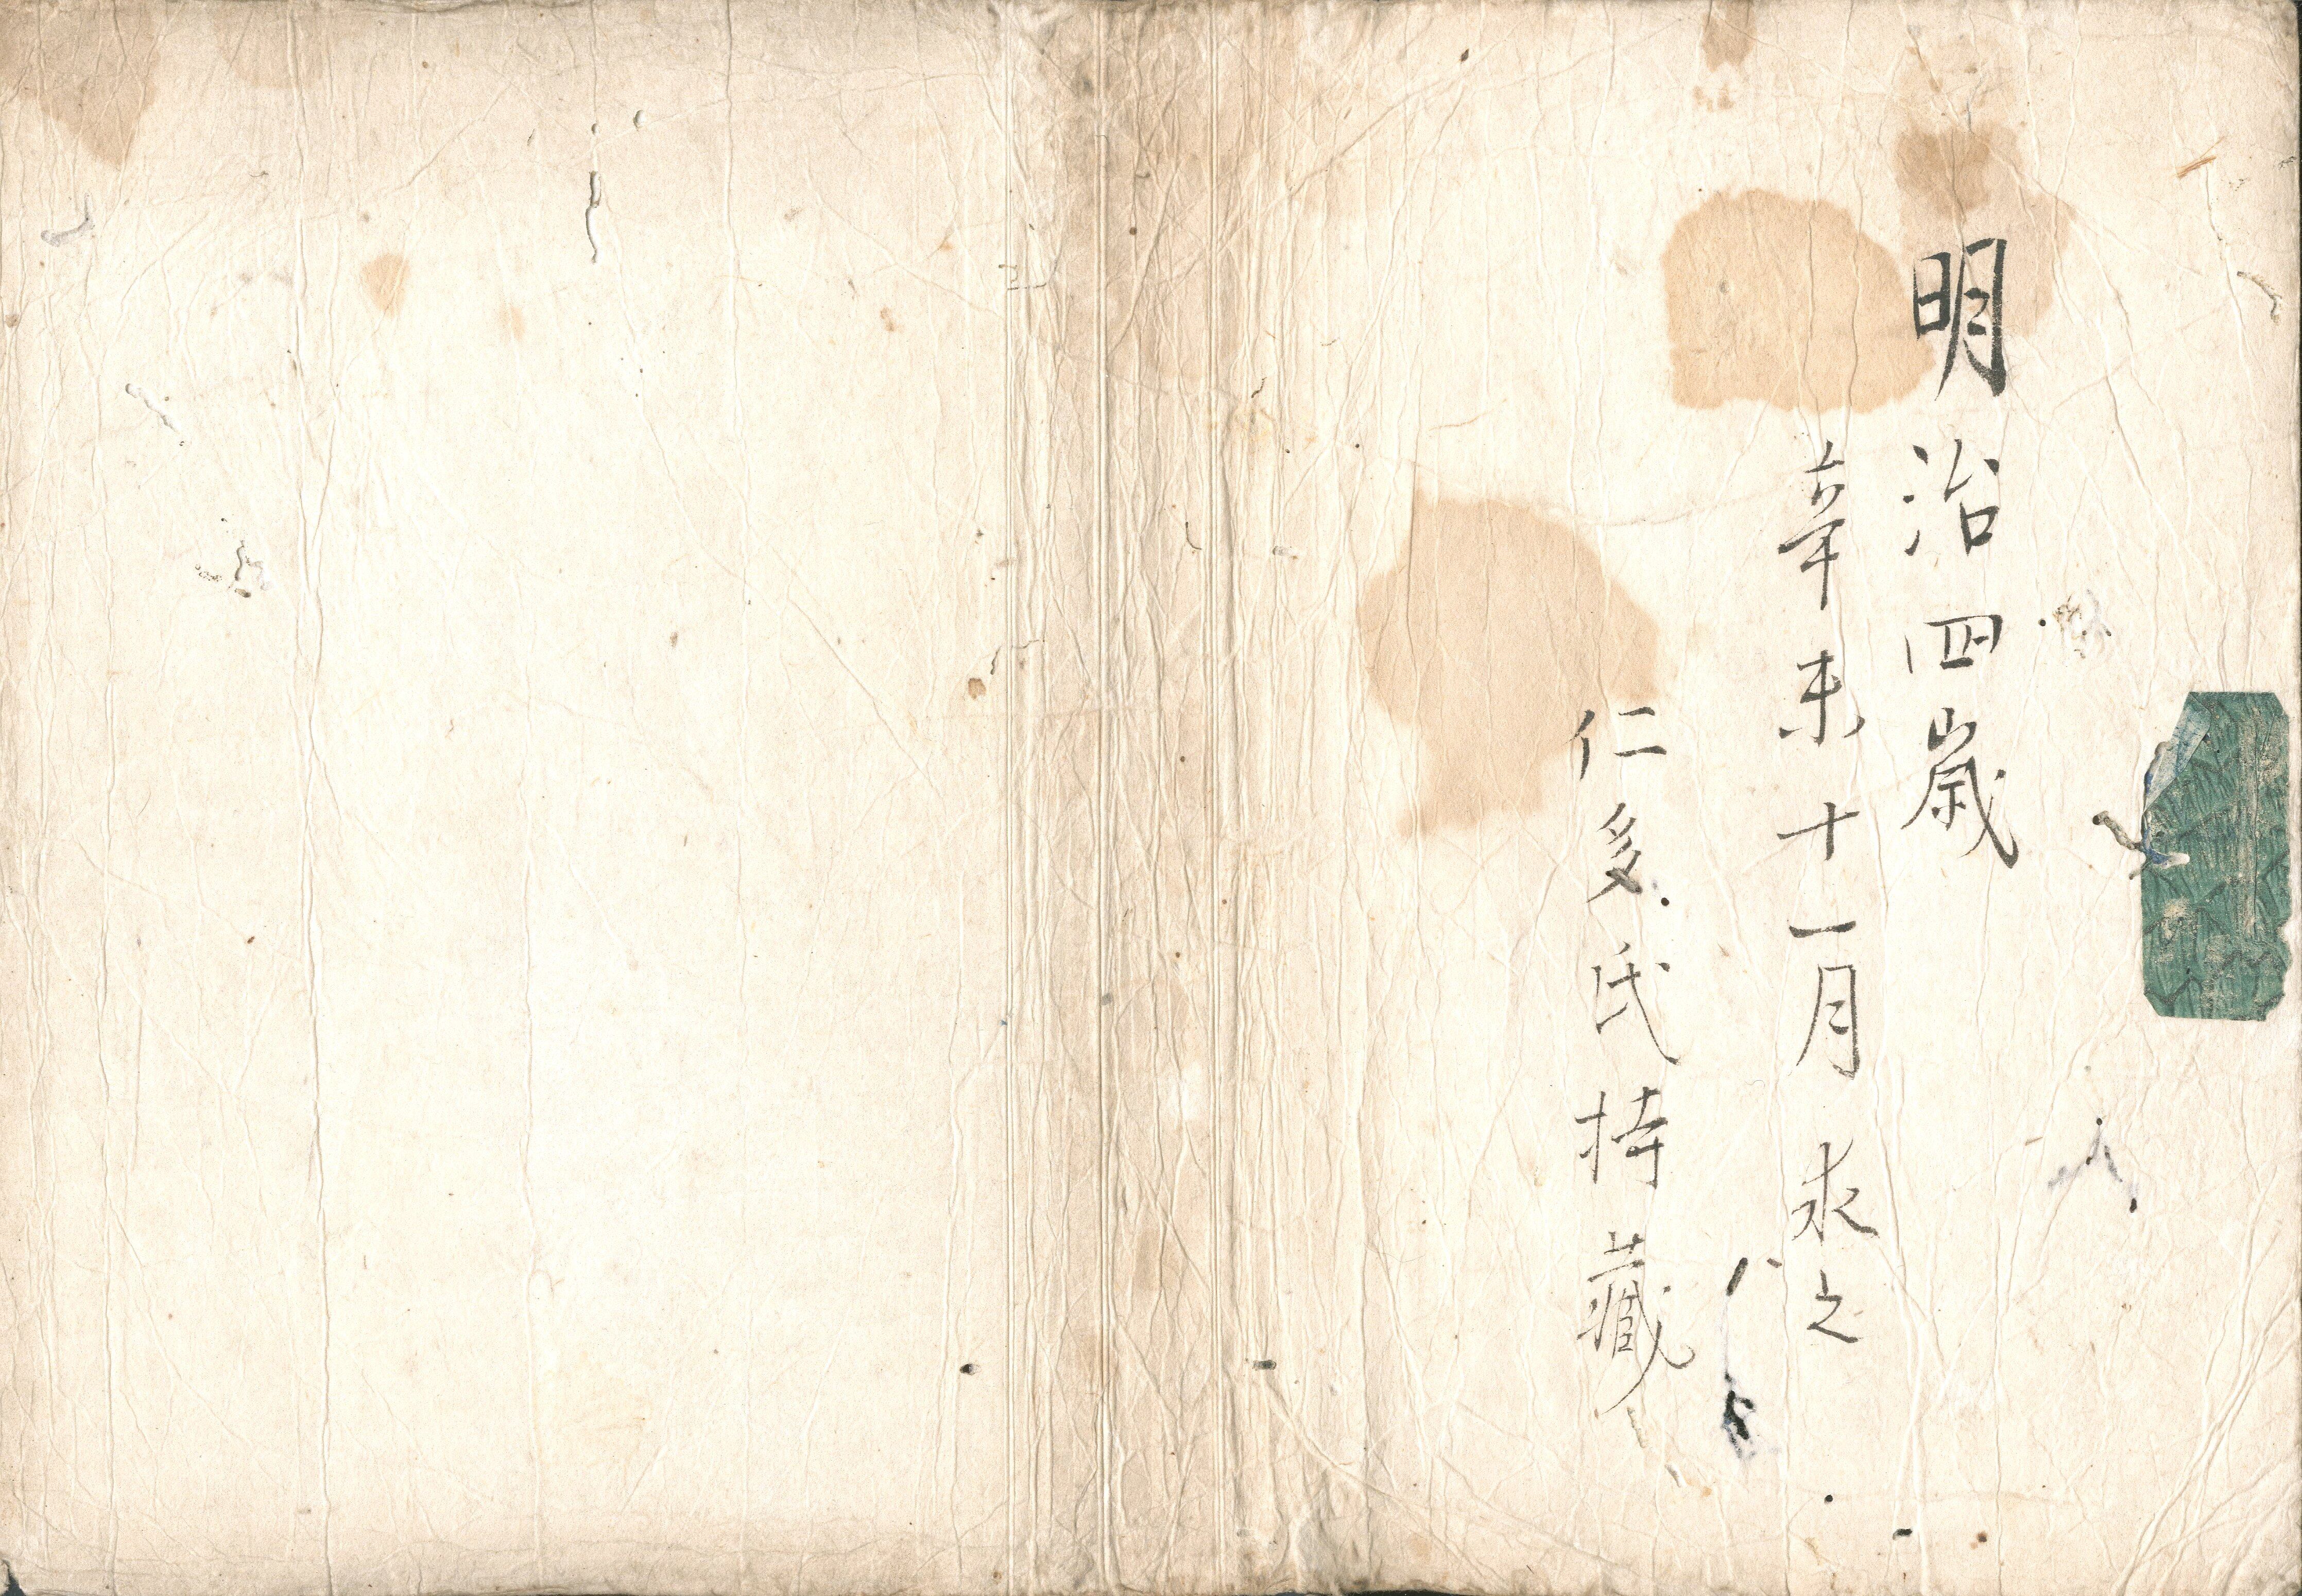 明治四歳
辛未十一月求之
仁多氏持藏